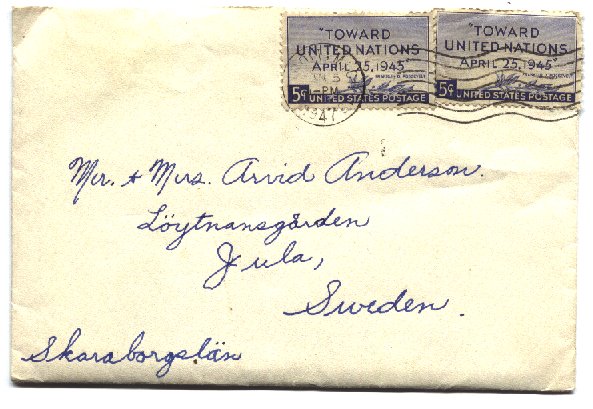 "TOWARD
UNITED NATIONS
APRIL 25, 1945"
5¢ UNITED STATES POSTAGE
"TOWARD
UNITED NATIONS
APRIL 25, 1945"
5¢ UNITED STATES POSTAGE
5
PM
1947
Mr. & Mrs. Arvid Anderson.
Löytnansgården
Jula,
Sweden.
Skaraborgslän